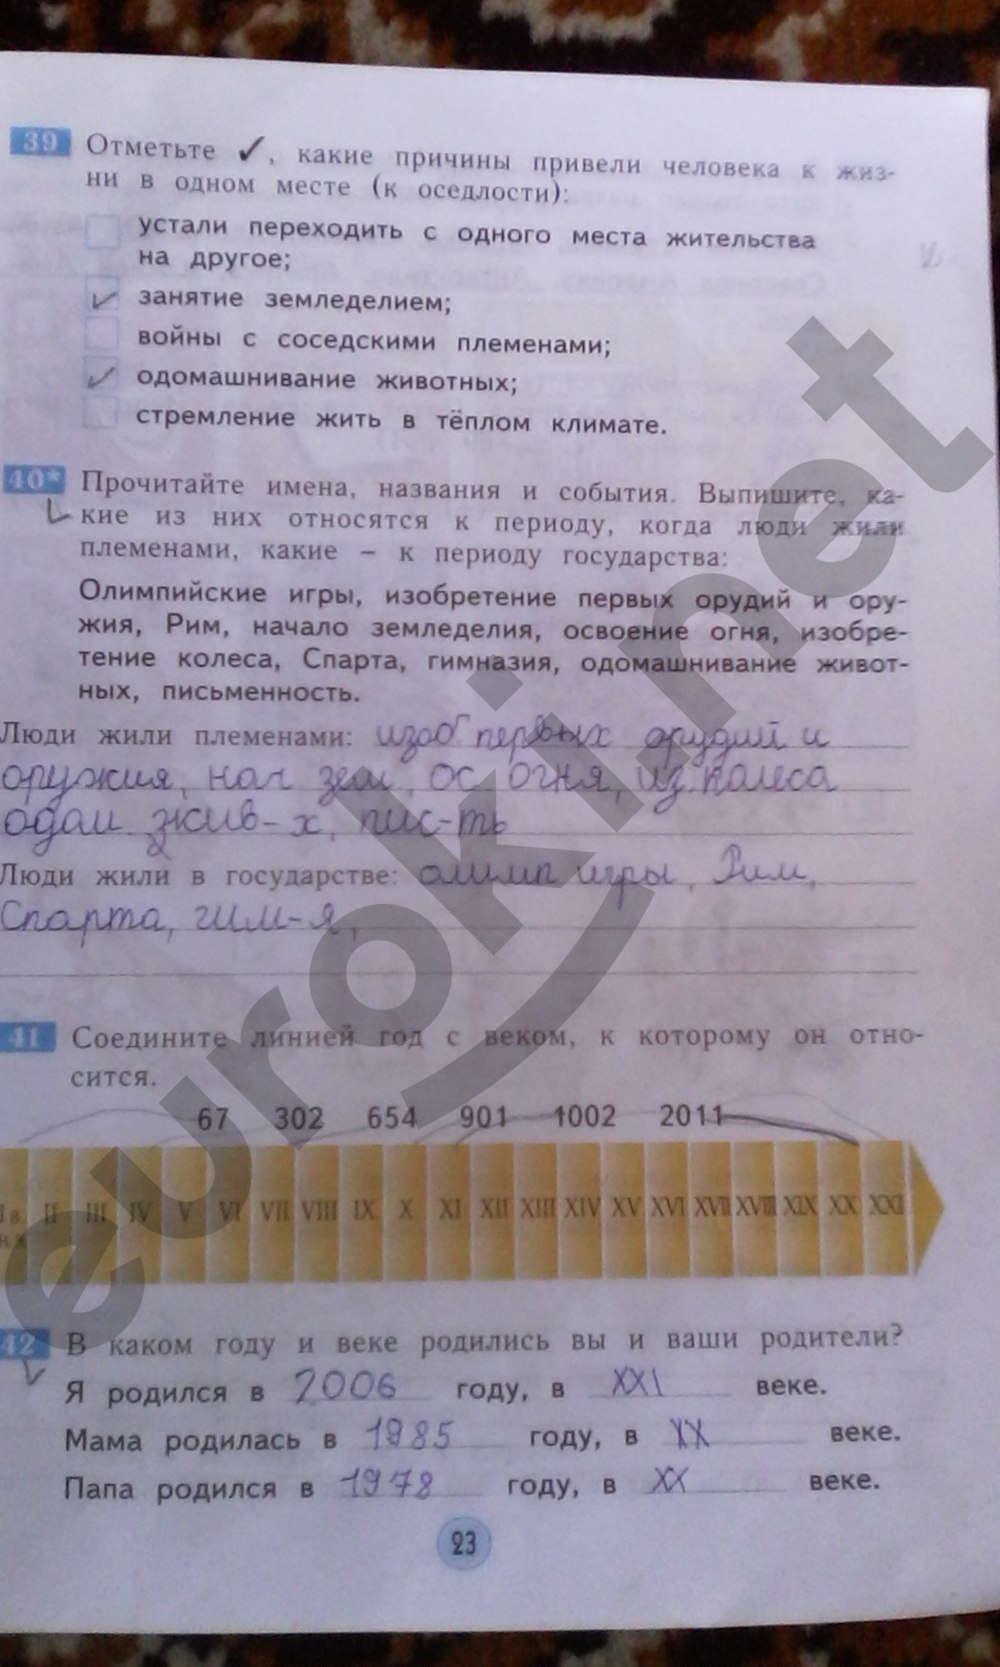 39 Отметьте ✓, какие причины привели человека к жиз-
ни в одном месте (к оседлости):
устали переходить с одного места жительства
на другое;
✓ занятие земледелием;
войны с соседскими племенами;
✓ одомашнивание животных;
стремление жить в тёплом климате.
40* Прочитайте имена, названия и события. Выпишите, ка-
кие из них относятся к периоду, когда люди жили
племенами, какие – к периоду государства:
Олимпийские игры, изобретение первых орудий и ору-
жия, Рим, начало земледелия, освоение огня, изобре-
тение колеса, Спарта, гимназия, одомашнивание живот-
ных, письменность.
Люди жили племенами: изоб первых орудий и
оружия, нач зем, ос огня, из. колеса
одом жив-х, пис-ть
Люди жили в государстве: олимп игры, Рим,
Спарта, гим-я,
41 Соедините линией год с веком, к которому он отно-
сится.
67 302 654 901 1002 2011
I в. II III IV V VI VII VIII IX X XI XII XIII XIV XV XVI XVII XVIII XIX XX XXI
н.э.
42 В каком году и веке родились вы и ваши родители?
Я родился в 2006 году, в XXI веке.
Мама родилась в 1985 году, в XX веке.
Папа родился в 1978 году, в XX веке.
23
eurokinet